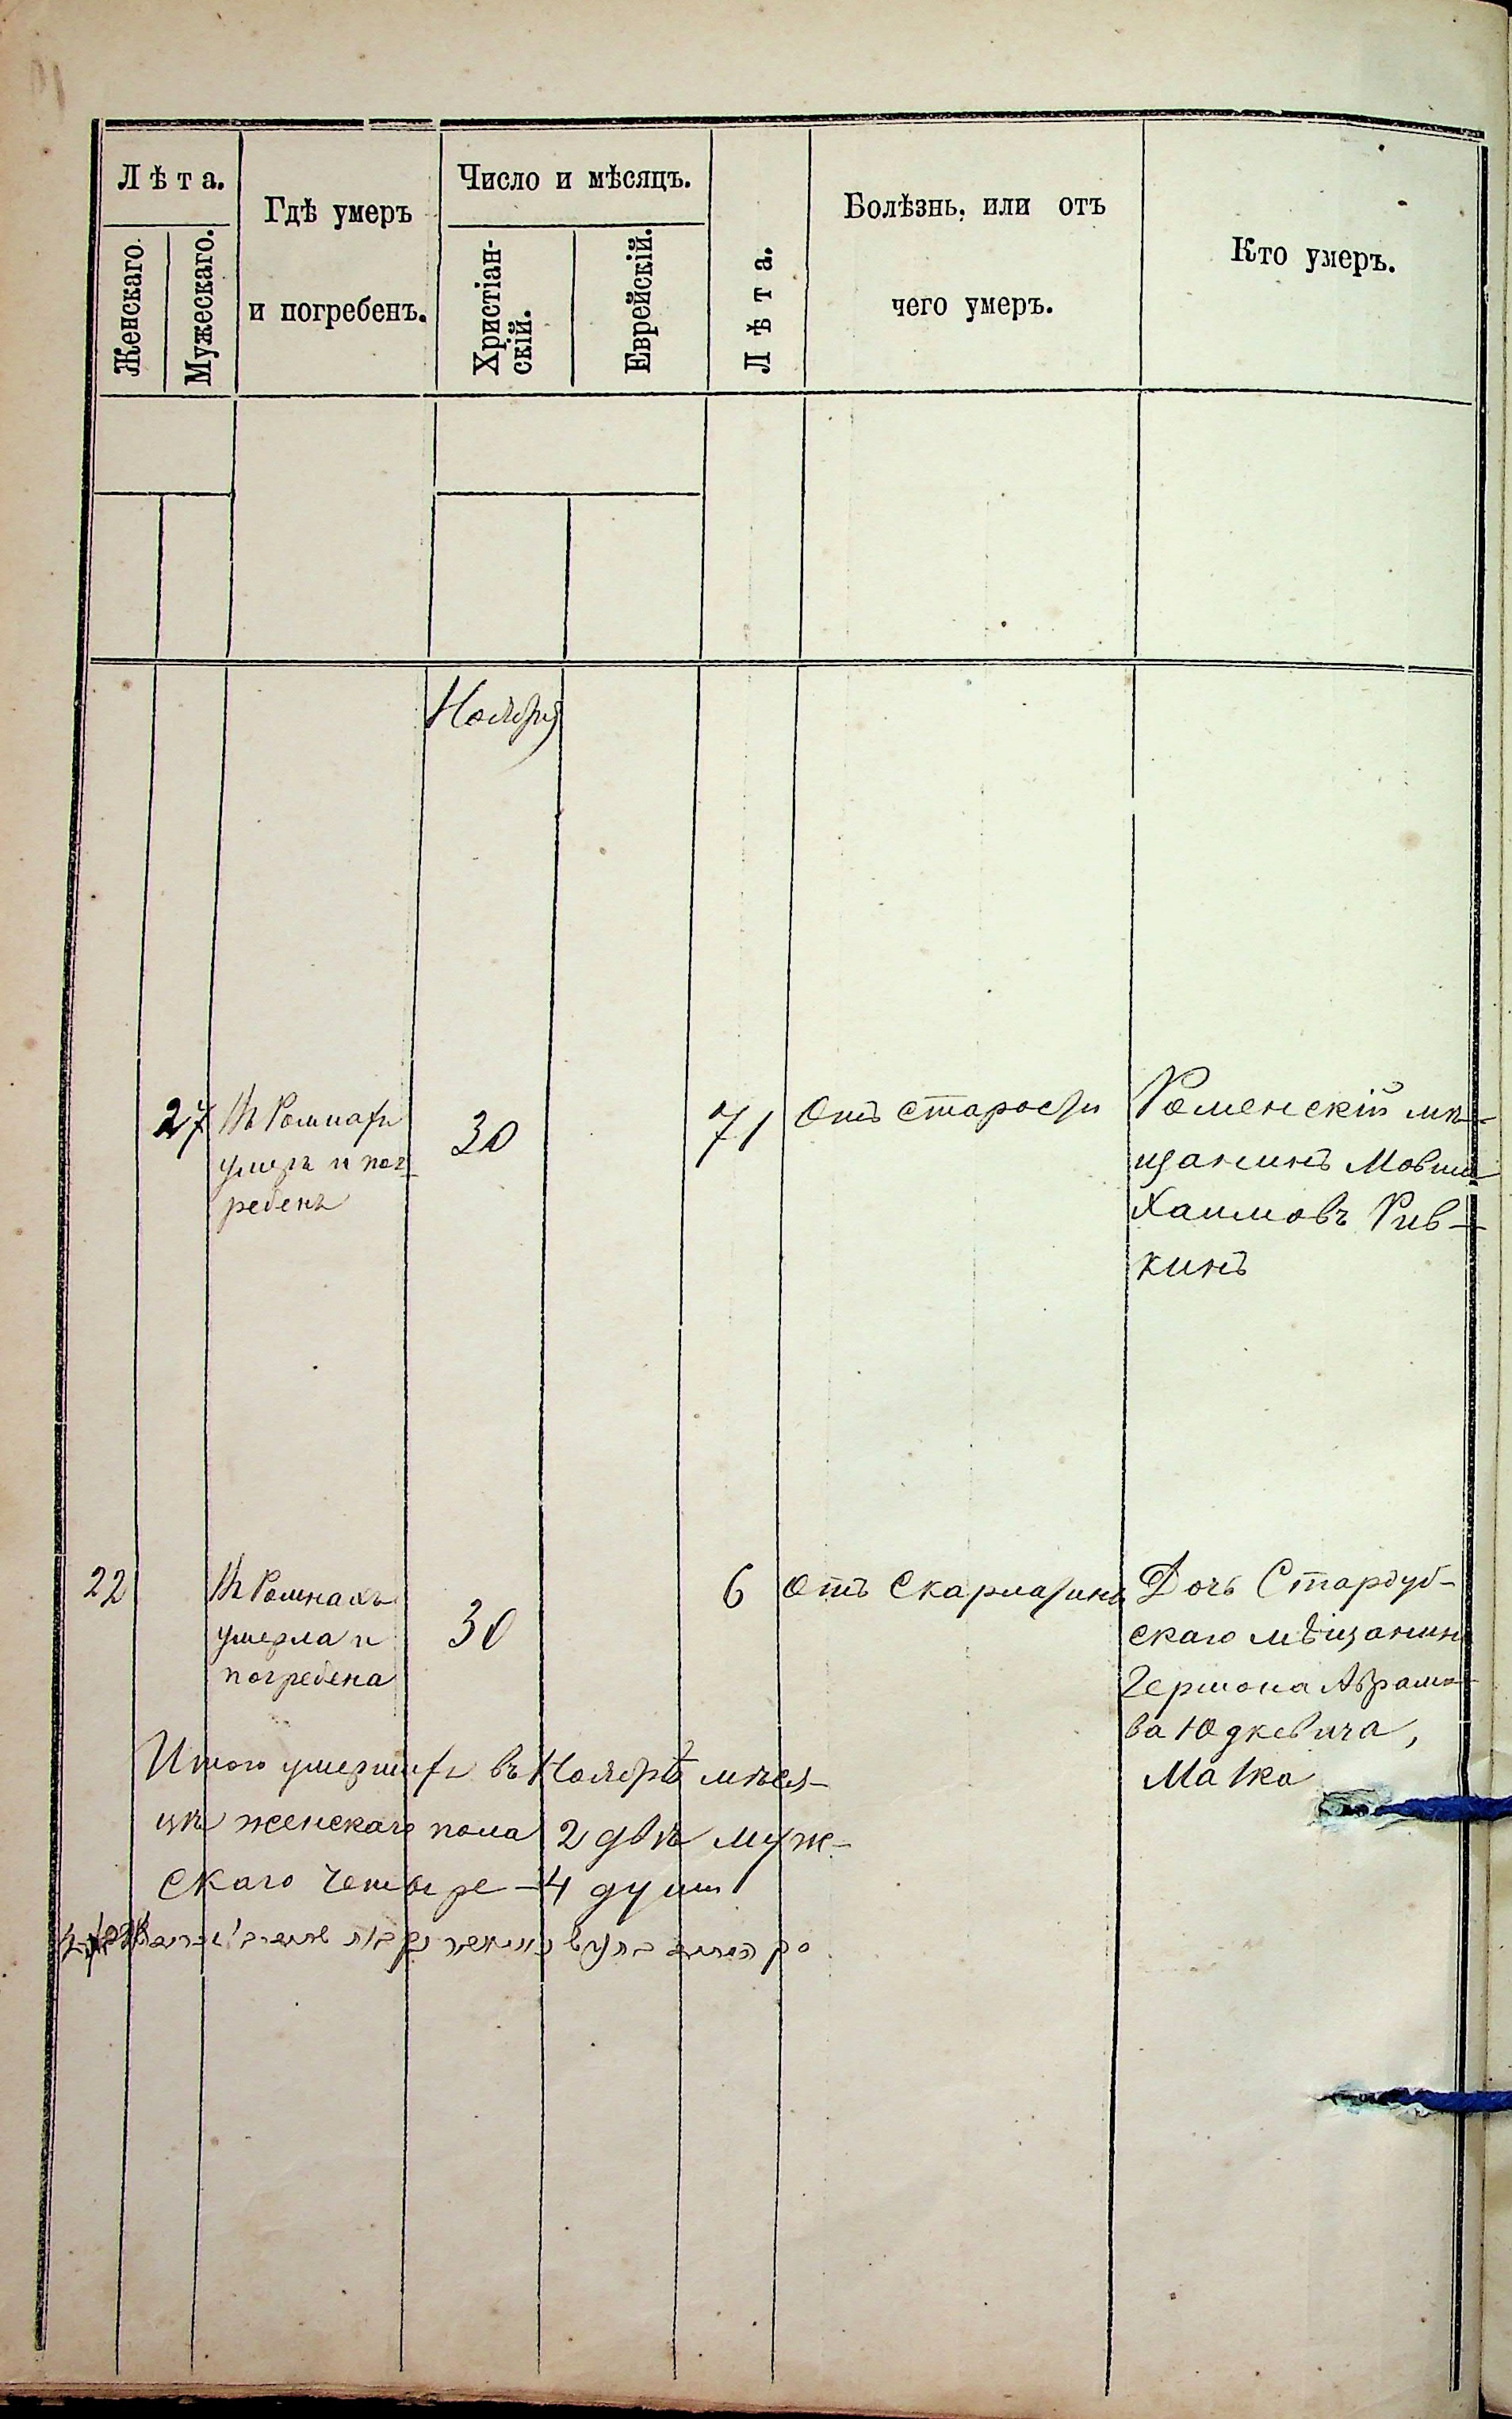 Лѣта.
Женскаго.
Мужескаго.
Гдѣ умеръ
и погребенъ.
Число и мѣсяцъ.
Христіан-
скій.
Еврейскій.
Лѣта.
Болѣзнь, или отъ
чего умеръ.
Кто умеръ.
Ноября
27
Въ Ромнахъ
умеръ и пог-
ребенъ
30
71
Отъ старости
Роменскій мѣ-
щанинъ Мовша
Хаимовъ Рив-
кинъ
22
Въ Ромнахъ
умерла и
погребена
30
6
Отъ Скарлатины
Дочь Стародуб-
скаго мѣщанина
Гершона Абрамо-
ва Юдкевича,
Малка
Итого умершихъ въ Ноябрѣ мѣся-
цѣ женскаго пола 2 двѣ муж-
скаго четыре - 4 души